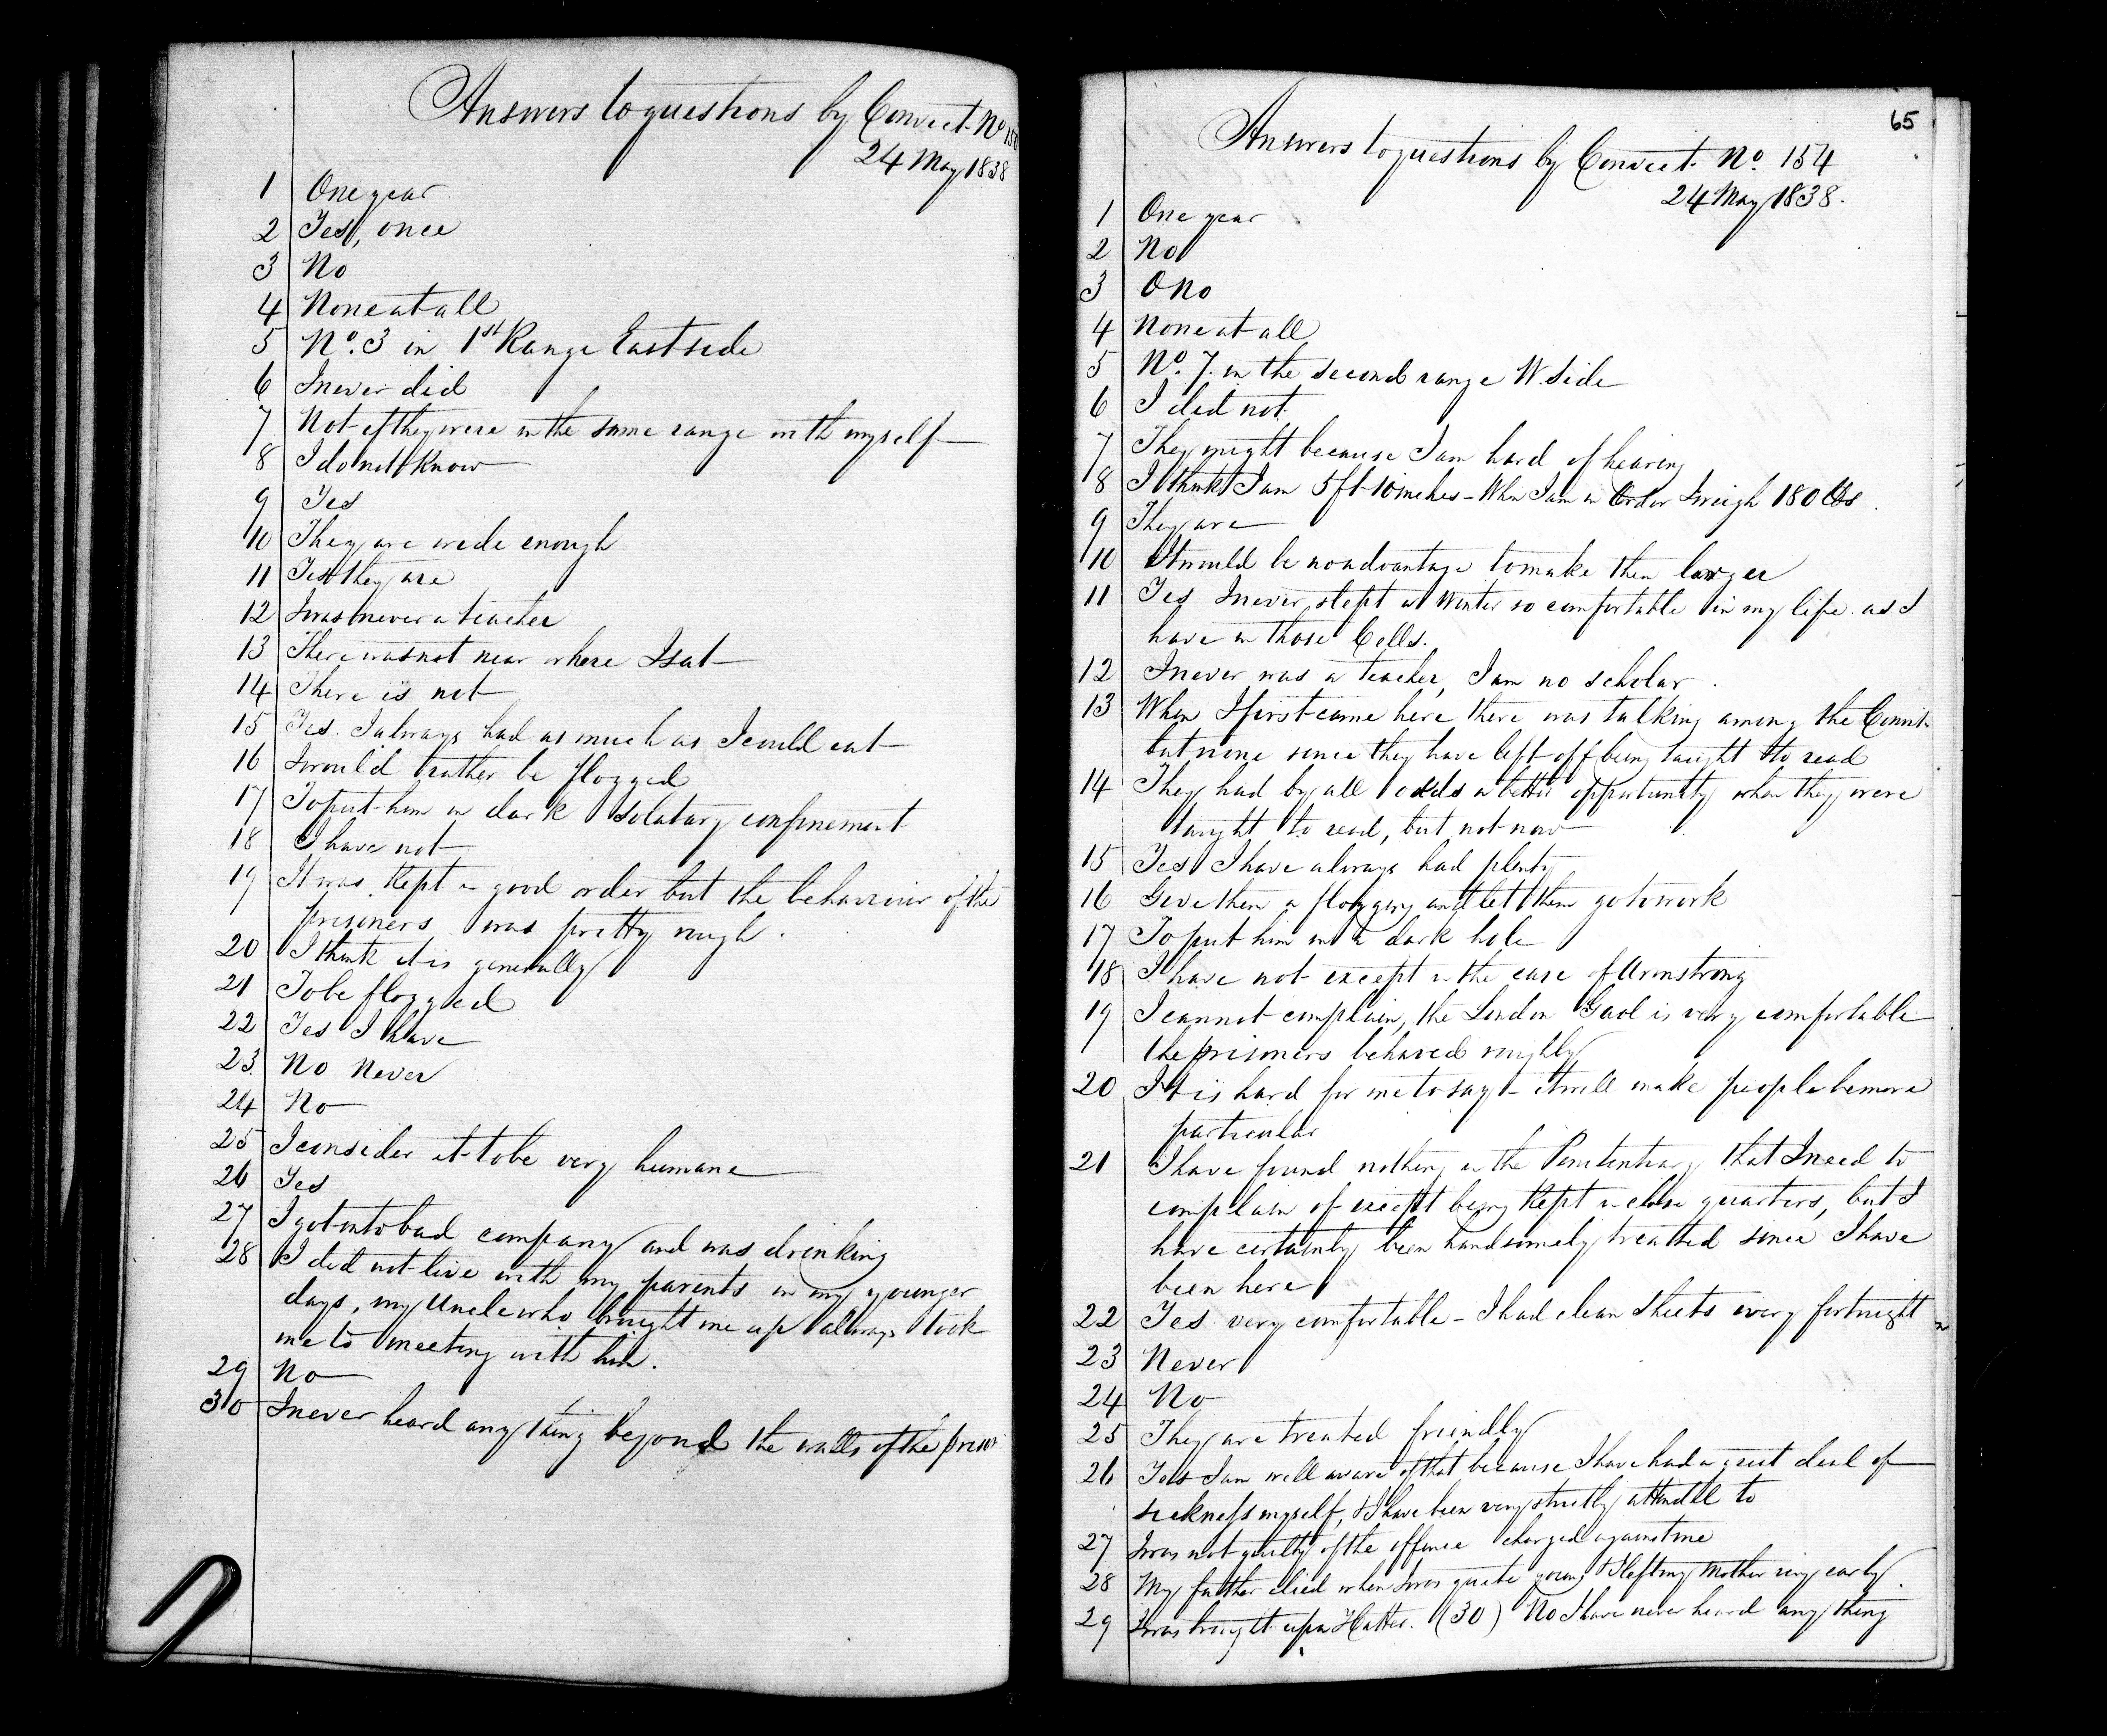 Answers to questions by Convict No 150
24 May 1838
1 One year
2 Yes, once
3 No
4 None at all
5 No. 3 in 1st Range East side
6 I never did
7 Not if they were in the same range with myself
8 I do not know
9 Yes
10 They are wide enough
11 Yes they are
12 I was never a teacher
13 There was not near where I sat
14 There is not
15 Yes. I always had as much as I could eat
16 I would rather be flogged
17 To put him in dark solatary confinement
18 I have not
19 It was kept in good order but the behaviour of the
prisoners was pretty rough.
20 I think it is generally
21 To be flogged
22 Yes I have
23 No Never
24 No
25 I consider it to be very humane
26 Yes
27 I got into bad company and was drinking
28 I did not live with my parents in my younger
days, my Uncle who brought me up always took
me to meeting with him.
29 No
30 I never heard any thing beyond the walls of the prison
65
Answers to questions by Convict. No. 154
24 May 1838.
1 One year
2 No
3 O No
4 None at all
5 No. 7. in the second range W. Side
6 I did not
7 They might because I am hard of hearing
8 I think I am 5 ft 10 inches - When I am in Order I weigh 180 lbs
9 They are
10 It would be no advantage to make them larger
11 Yes I never slept in Winter so comfortable in my life as I
have in those Cells.
12 I never was a teacher, I am no scholar.
13 When I first came here there was talking among the Convts.
but none since they have left off being taught to read
14 They had by all odds a better opportunity when they were
taught to read, but not now
15 Yes I have always had plenty
16 Give them a flogging and let them go to work
17 To put him in a dark hole
18 I have not except in the case of Armstrong
19 I cannot complain, the London Gaol is very comfortable
the prisoners behaved roughly
20 It is hard for me to say - it will make people be more
particular
21 I have found nothing in the Penitentiary that I need to
complain of except being kept in close quarters, but I
have certainly been handsomely treated since I have
been here
22 Yes very comfortable - I had clean sheets every fortnight
23 Never
24 No
25 They are treated friendly
26 Yes I am well aware of that because I have had a great deal of
sickness myself, & I have been very strictly attended to
27 I was not guilty of the offence charged against me
28 My father died when I was quite young & I left my Mother very early.
29 I was brought up a Hatter. (30) No I have never heard any thing